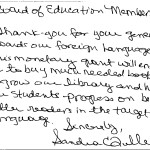 Board of Education Member
Thank you for your gene
oads our foreign language
is monetary grant will en
to buy much needed boo
grow our library and h
students progress on be
ller readers in the target
anguage.
Sincerely,
Sandra